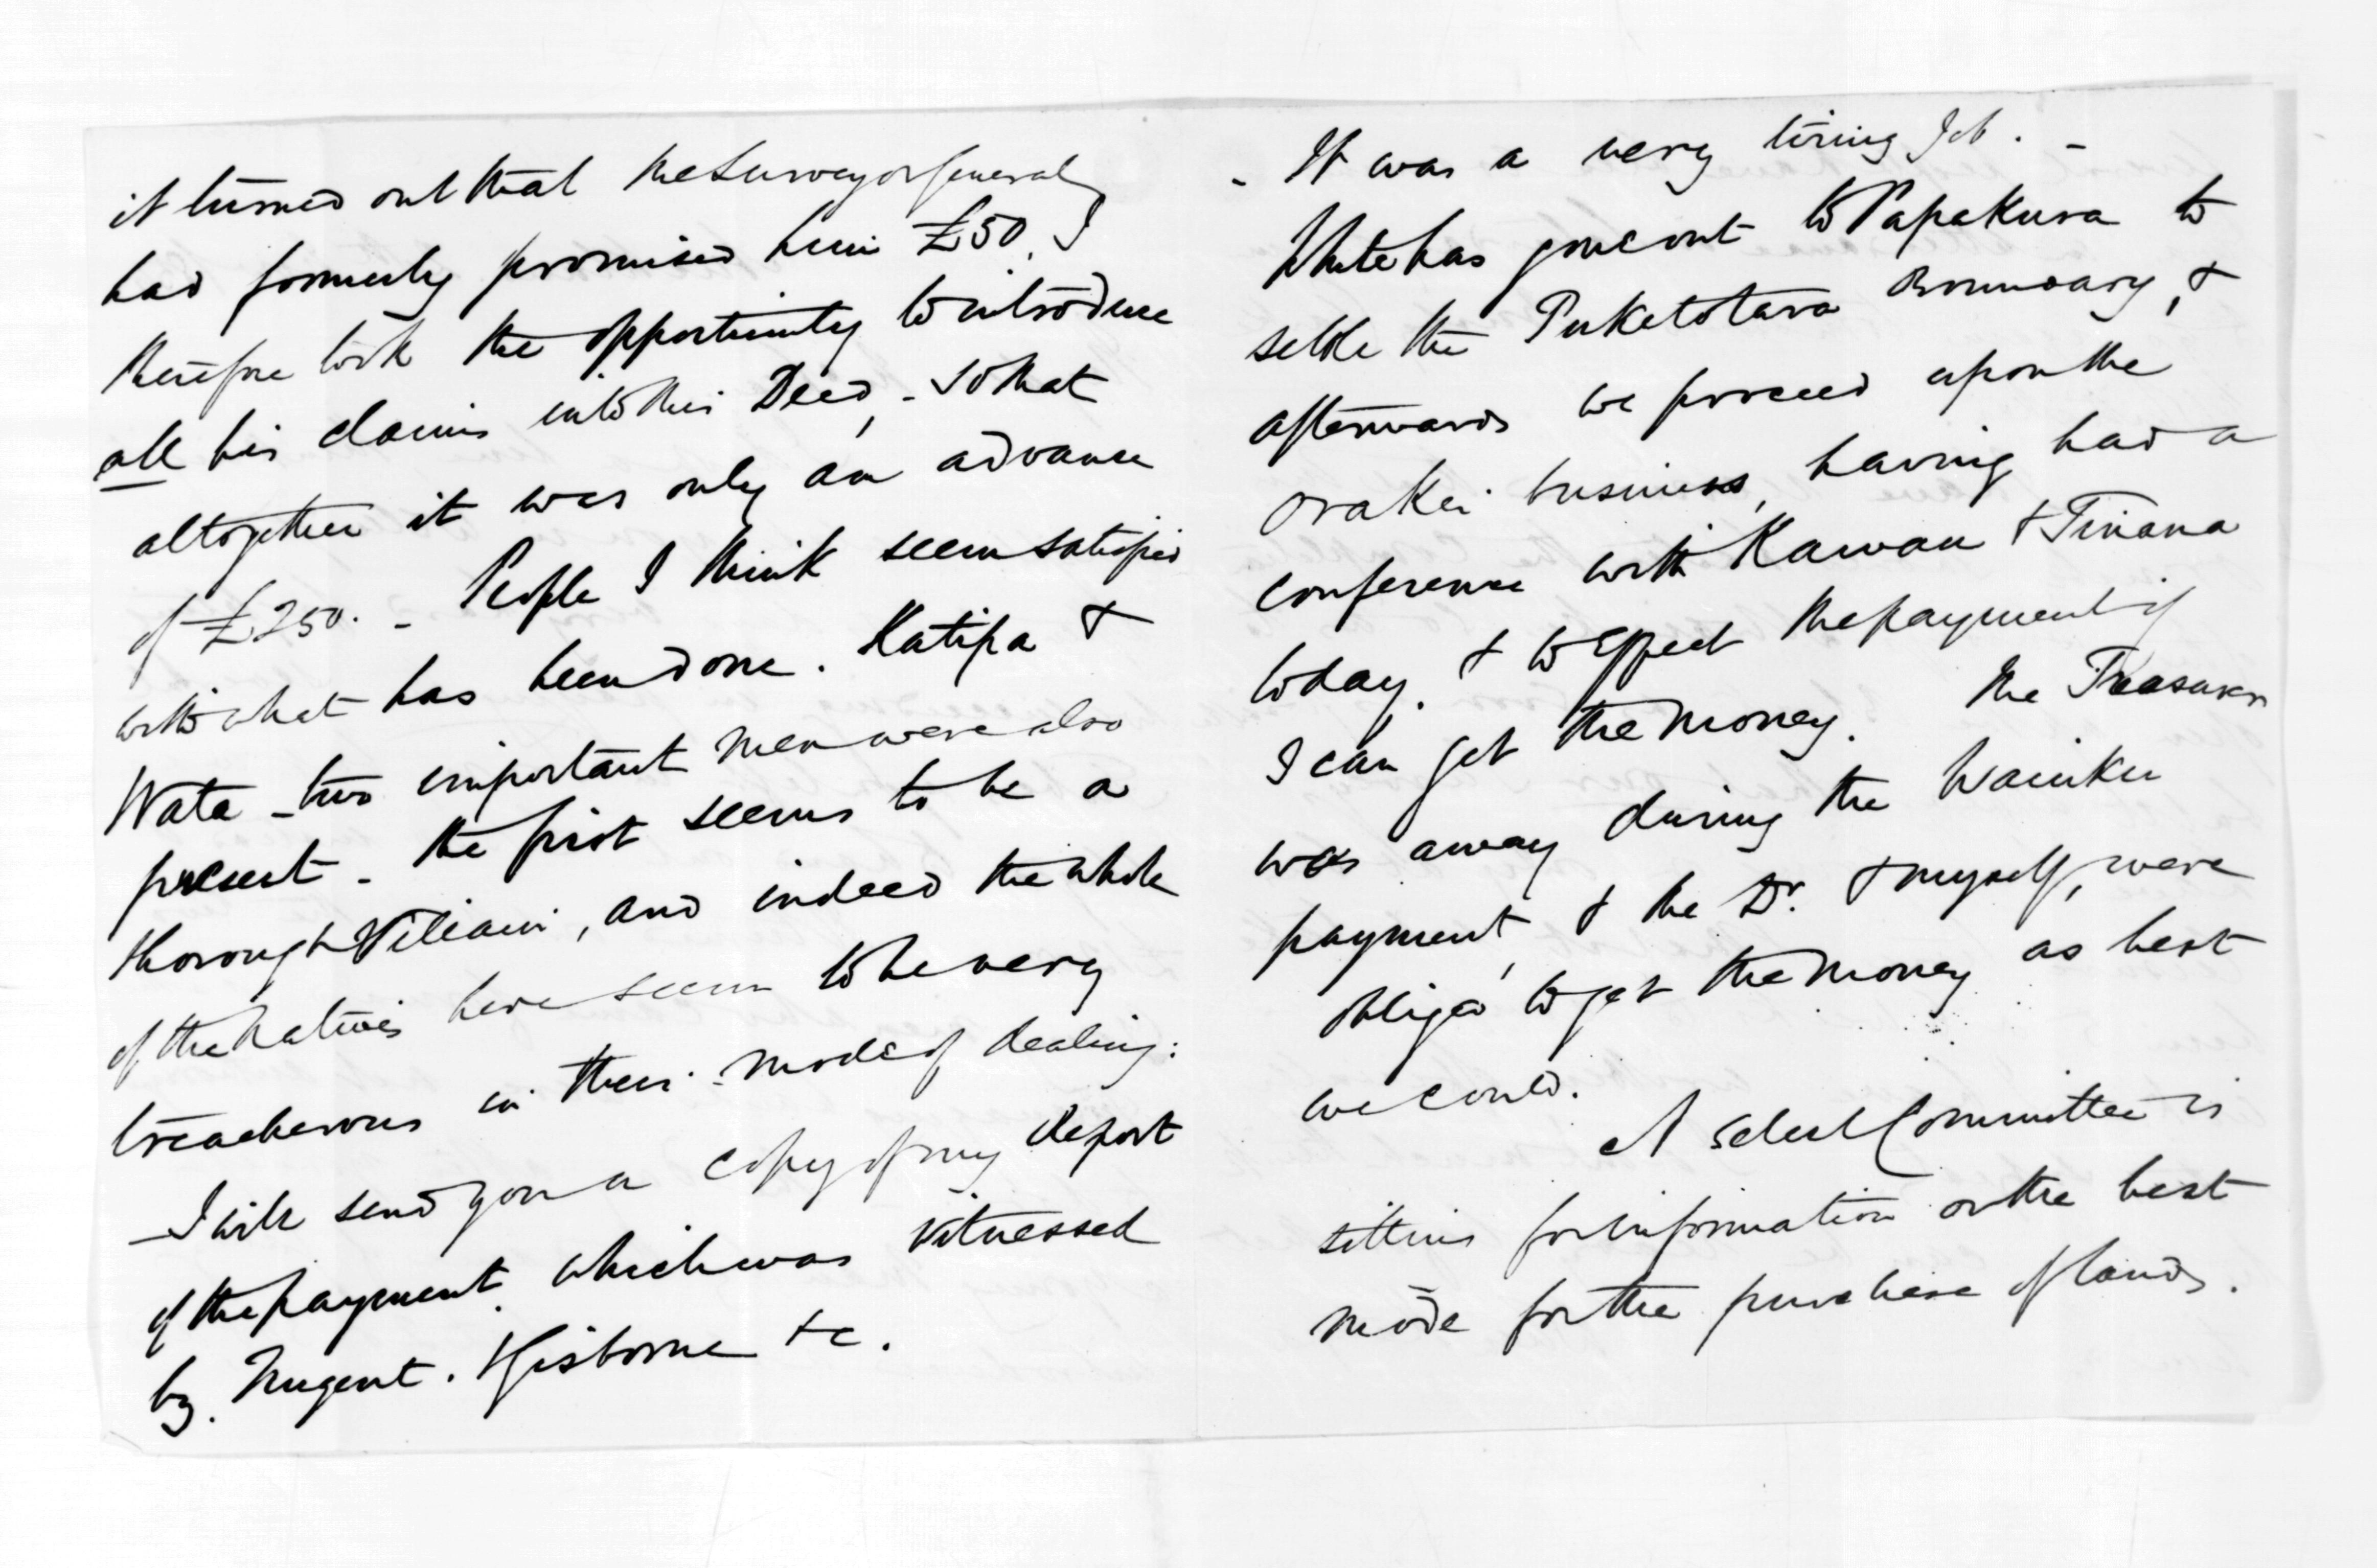 it turned out that the Surveyor General
had formerly promised him £50. I
therefore took the opportunity to introduce
all his claims into this Deed, - so that
altogether it was only an advance
of £250. - People I think seem satisfied
with what has been done. Katipa &
Wata - two important men were also
present - the first seems to be a
thorough Villain, and indeed the whole
of the Natives here seem to be very
treacherous in their mode of dealing:
- I will send you a copy of my Report
of the payment, which was witnessed
by. Nugent. Gisborne &c.
- It was a very tiring Job. -
White has gone out to Papakura to
settle the Puketotara Boundary, &
afterwards we proceed upon the
Orakei business, having had a
conference with Kawau & Tinana
today. & to effect the payment if
I can get the money. The Treasurer
was away during the Waiuku
payment, & the Dr. & myself, were
obliged to get the money as best
we could.
A Select Committee is
sitting for information on the best
mode for the purchase of lands.